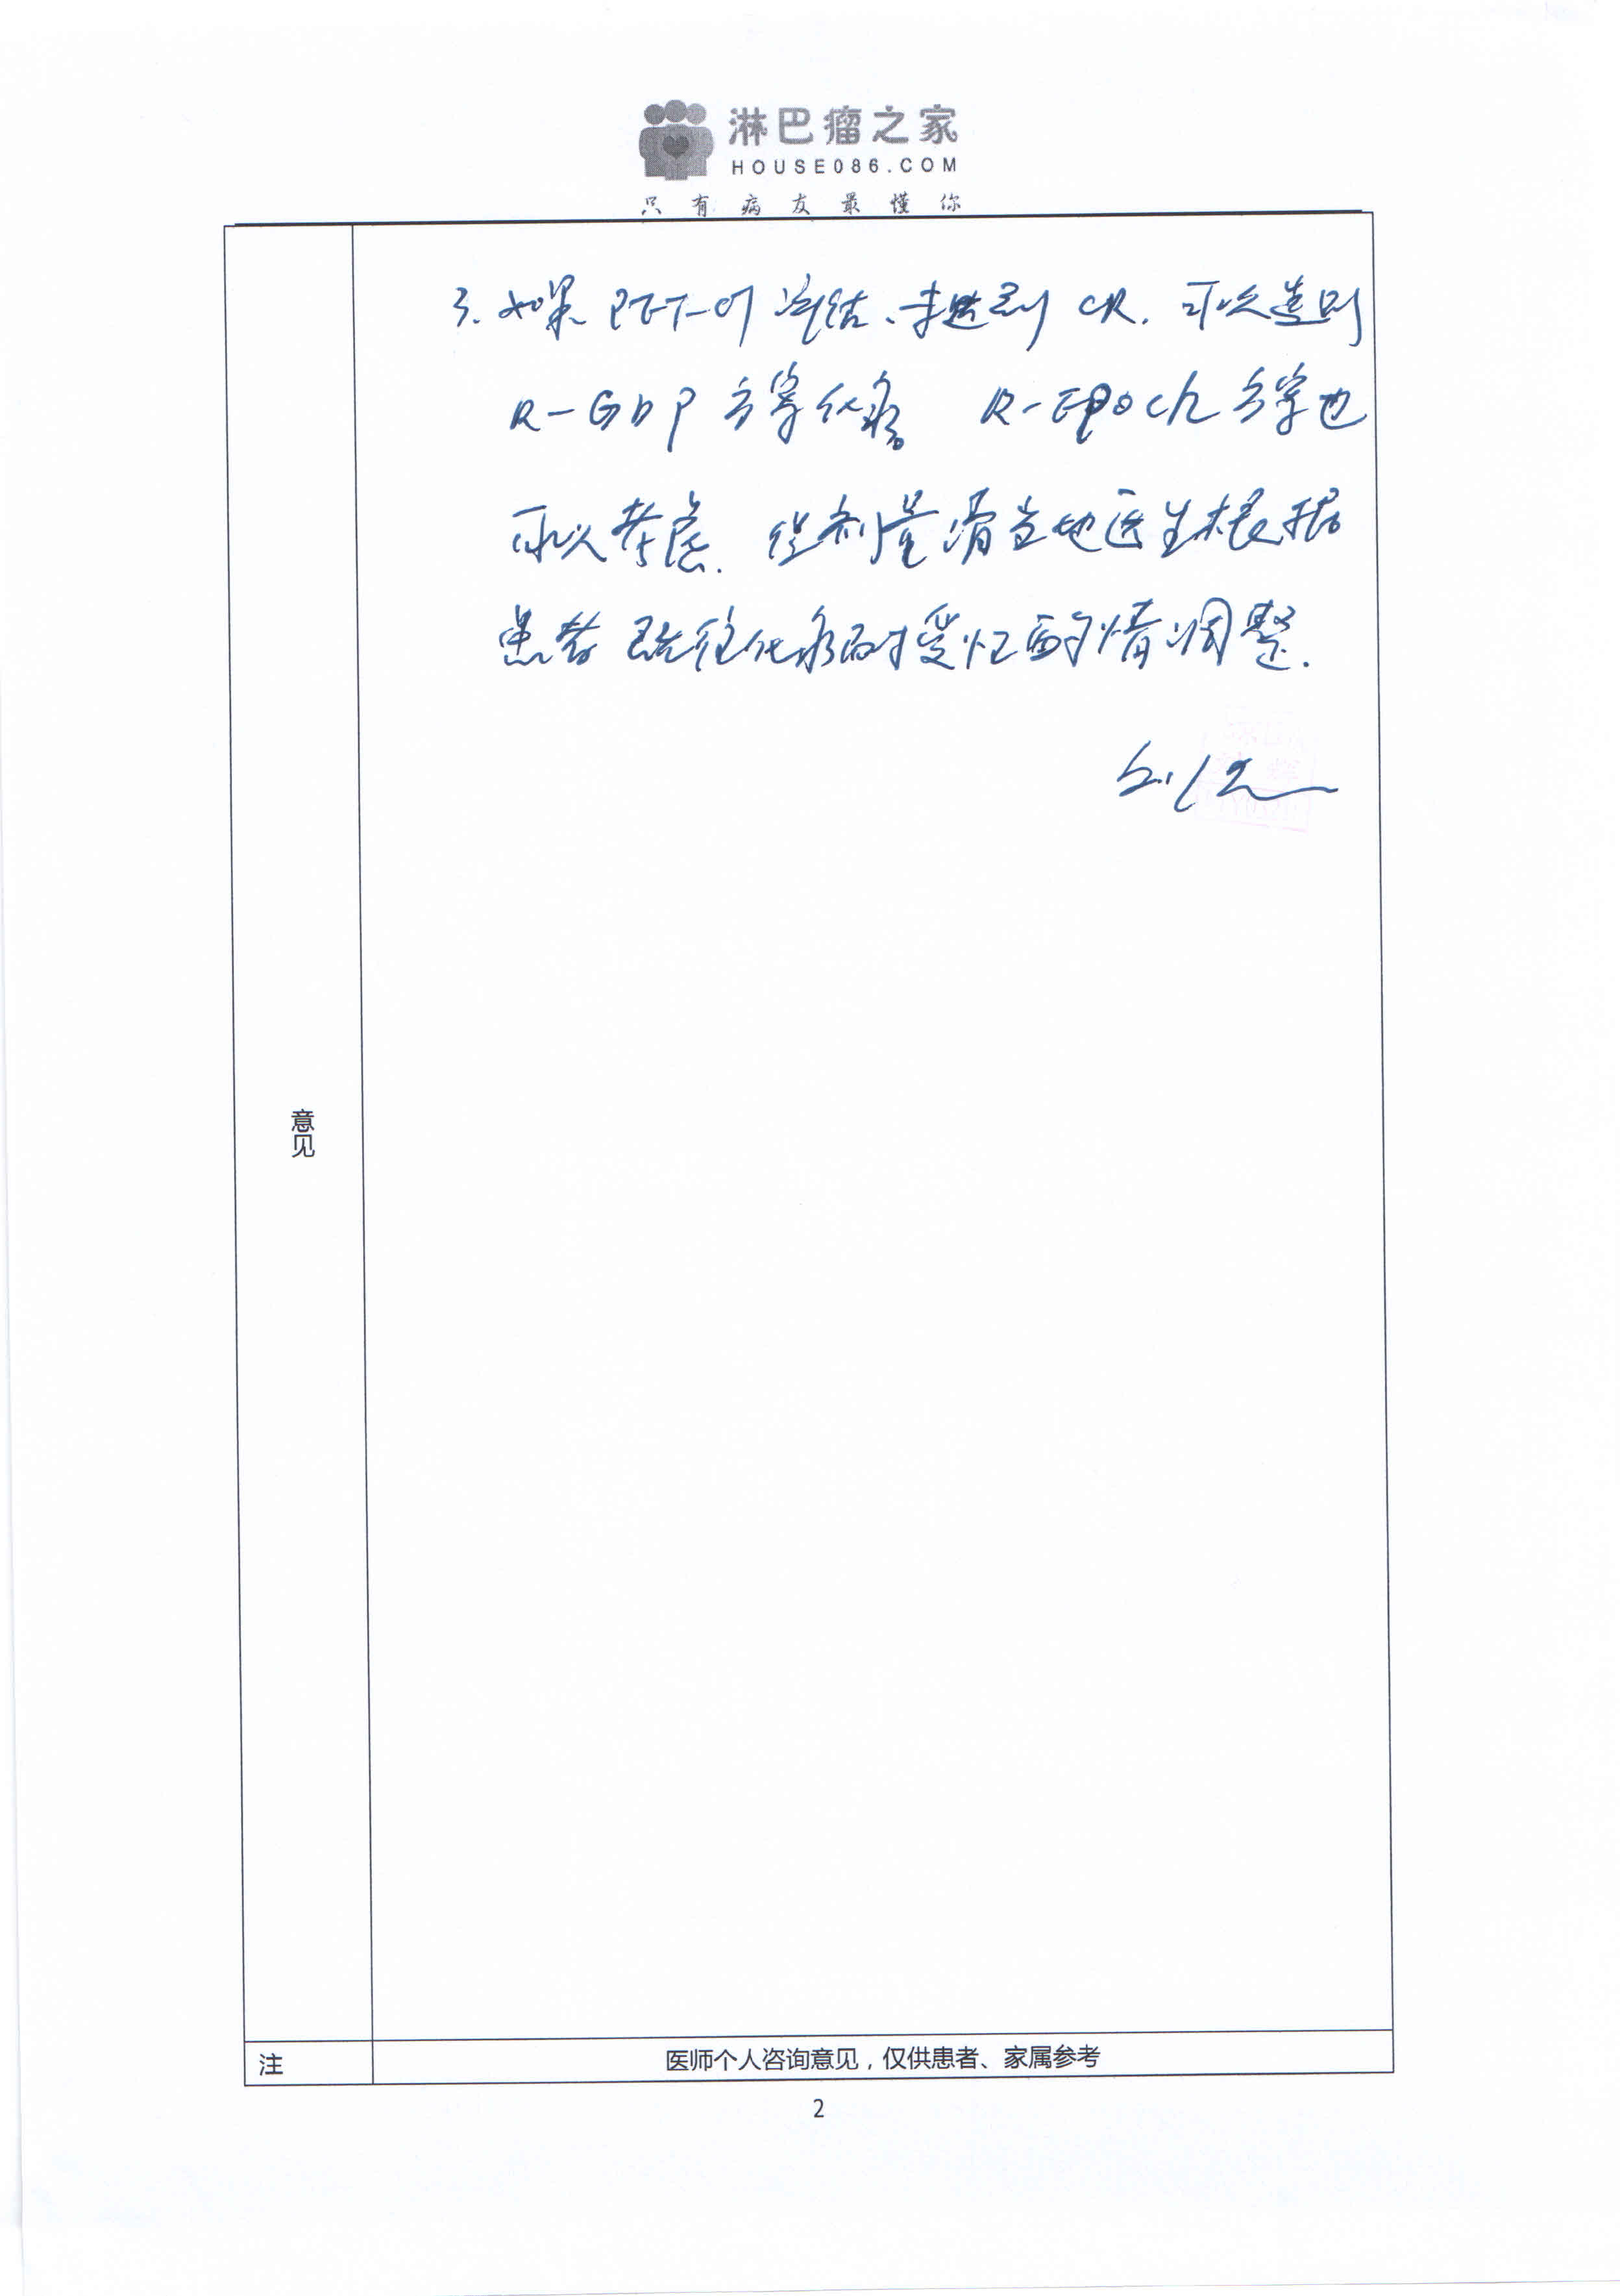 淋巴瘤之家
HOUSE086.COM
只有病友最懂你
3. 如果 PET-CT 评估、未达到 CR. 可以选用
R-GDP 方案化疗 R-EPOCH 方案也
可以考虑. 但剂量需当地医生根据
患者既往化疗耐受性酌情调整.
意见
注
医师个人咨询意见，仅供患者、家属参考
2